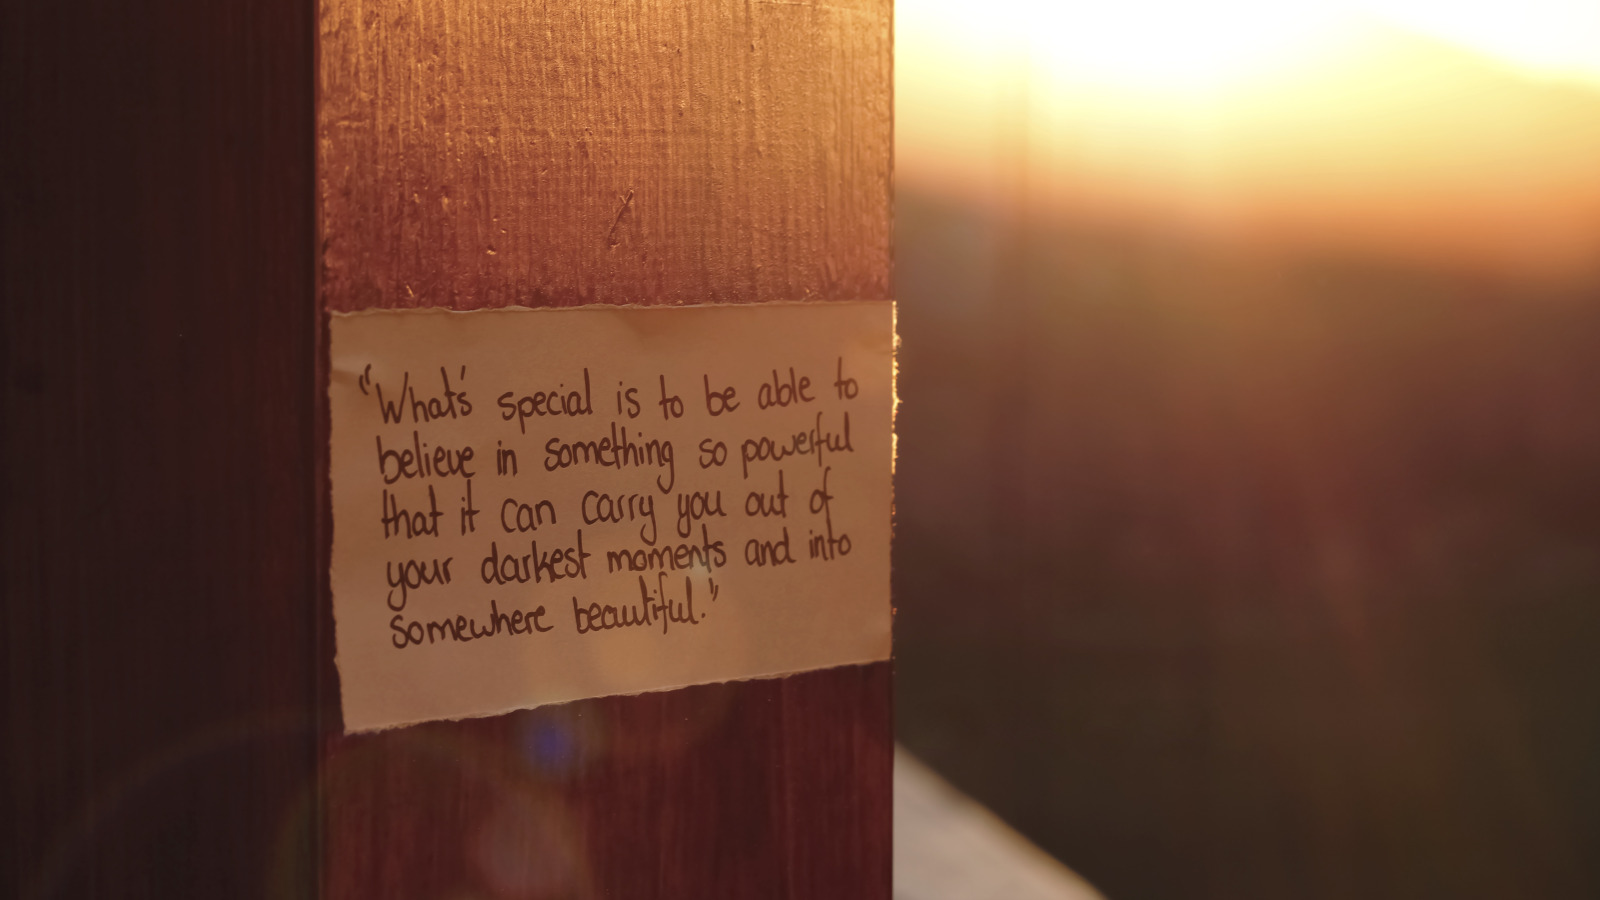 "What's special is to be able to
believe in something so powerful
that it can carry you out of
your darkest moments and into
somewhere beautiful."